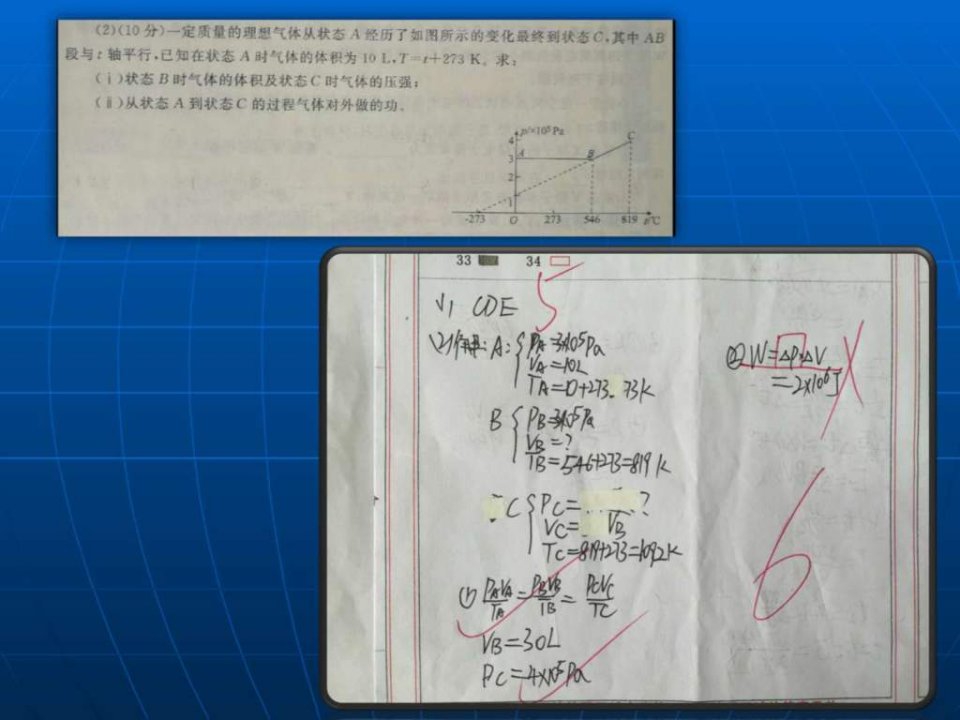 (2)(10分)一定质量的理想气体从状态A经历了如图所示的变化最终到状态C,其中AB
段与t轴平行,已知在状态A时气体的体积为10 L,T=t+273 K。求:
(ⅰ)状态B时气体的体积及状态C时气体的压强;
(ⅱ)从状态A到状态C的过程气体对外做的功。
p/×10⁵Pa
4
3
2
1
A
B
C
-273 O 273 546 819 t/℃
33 34
5
(1) CDE
A: PA=3×10⁵Pa
VA=10L
TA=0+273 73K
B PB=3×10⁵Pa
VB=?
TB=546+273=819K
C PC= ?
VC= VB
TC=819+273=1092K
① PAVA/TA=PBVB/TB=PCVC/TC
VB=30L
PC=4×10⁵Pa
② W=ΔP×ΔV
=2×10⁶J
6